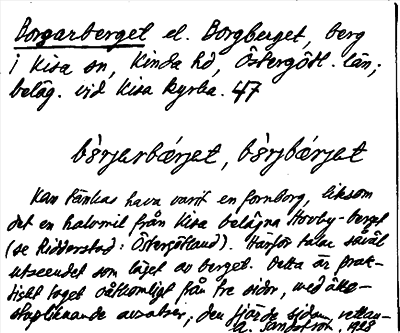 Borgarberget el. Borgberget, berg
i Kisa sn, Kinda hd, Östergötl. län;
beläg. vid Kisa kyrka. 47
bòrjarbærjet, bòrjbærjet
Kan tänkas hava varit en fornborg, liksom
det en halvmil från Kisa belägna Hovby-berget
(se Ridderstad: Östergötland). Härför talar såväl
utseendet som läget av berget. Detta är prak-
tiskt taget oåtkomligt från tre sidor, med
stupande avsatser; den fjärde sidan
1928